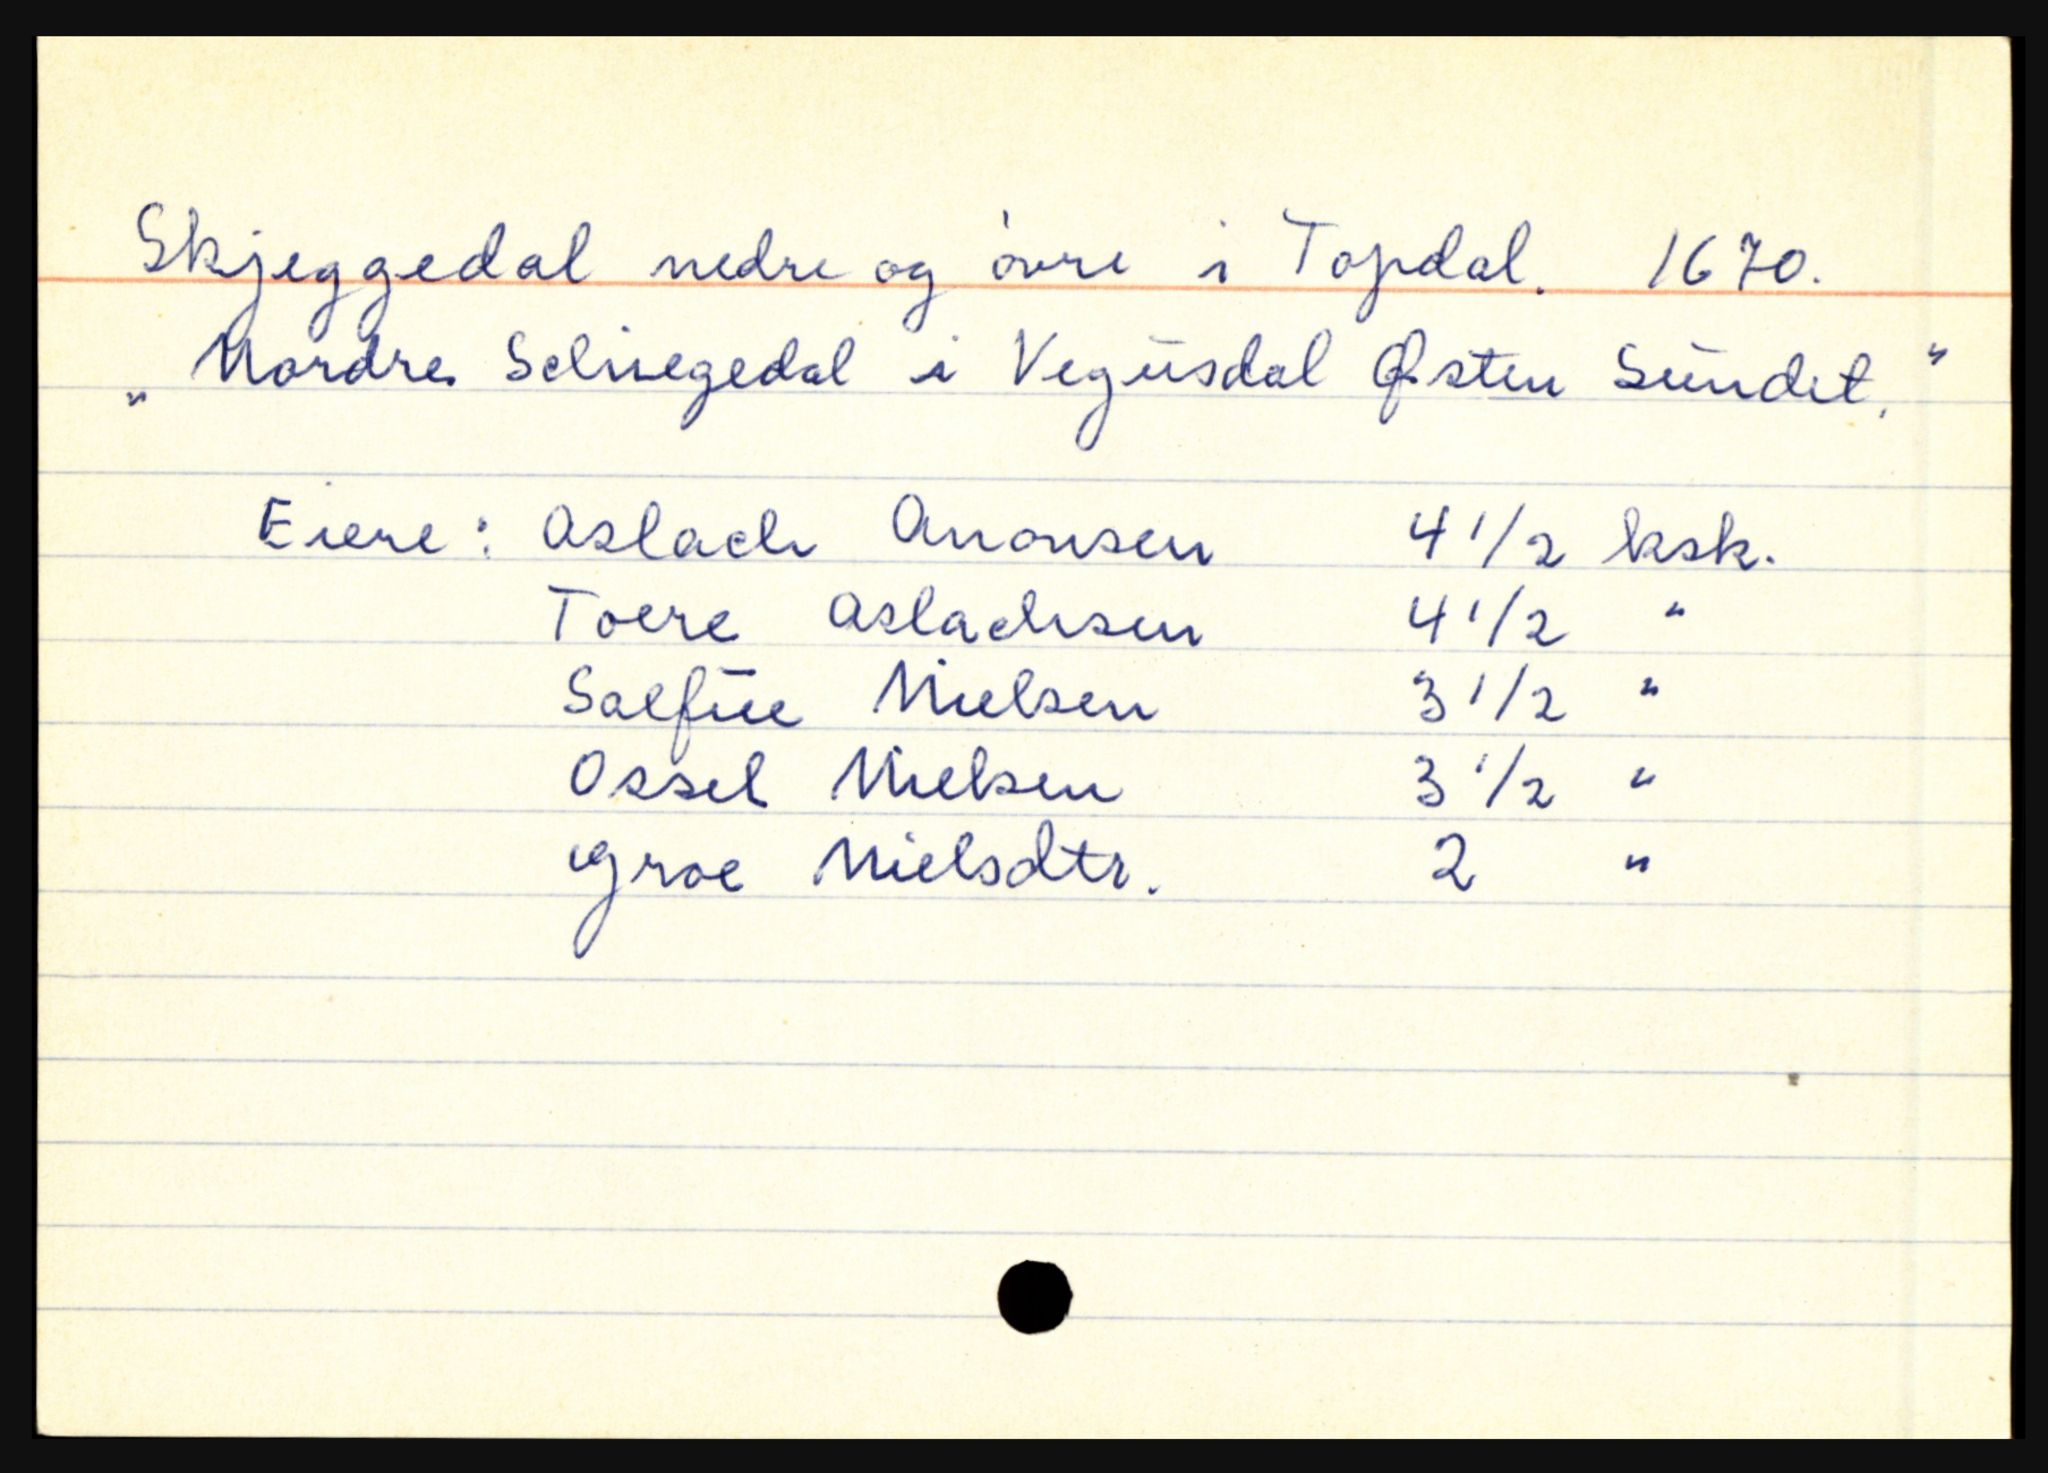 Skjeggedal nedre og övre i Topdal. 1670.
„Nordre Schiegedal i Vegusdal Østen Sundet."
Eiere: Aslach Anonsen 4 1/2 ksk.
Toere Aslachsen 4 1/2 "
Salfue Nielsen 3 1/2 "
Ossel Nielsen 3 1/2 "
Groe Nielsdtr. 2 "